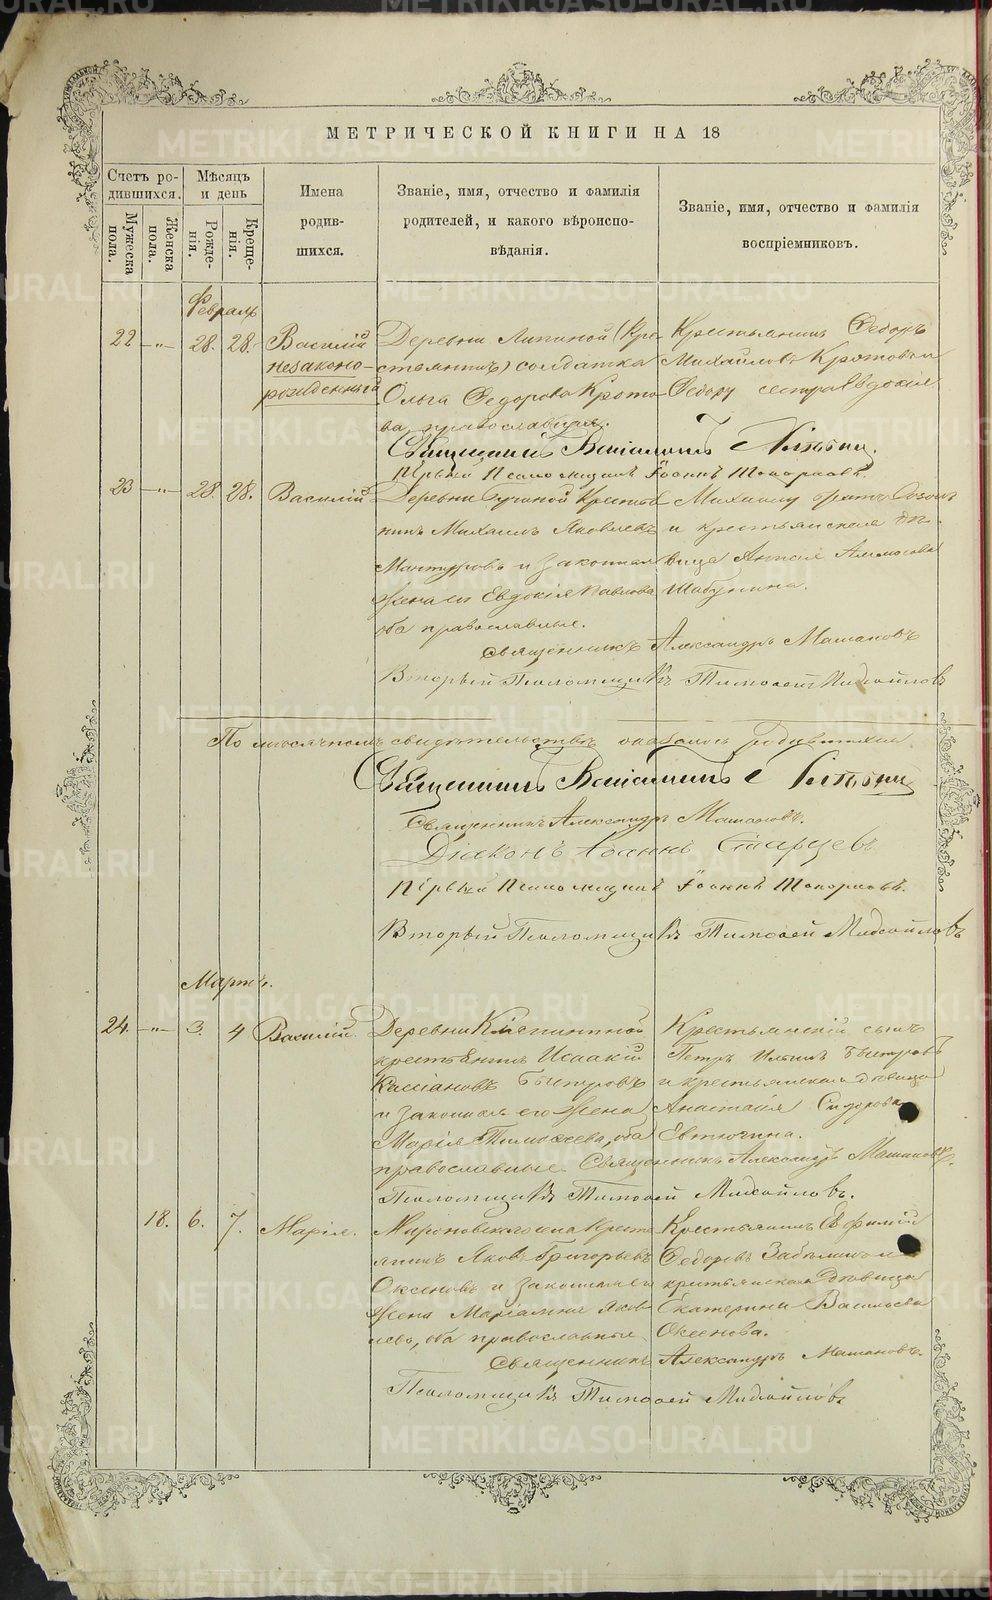 МЕТРИЧЕСКОЙ КНИГИ НА 18
Счетъ родившихся.
Мужеска пола.
Женска пола.
Мѣсяцъ и день
Рожденія.
Крещенія.
Имена родившихся.
Званіе, имя, отчество и фамилія родителей, и какого вѣроисповѣданія.
Званіе, имя, отчество и фамилія воспріемниковъ.
Февраль
22 -„- 28. 28. Василій
незаконнорожденный
Деревни Липиной (Кре
стьянинъ) солдатка
Ольга Федорова Крото
ва православная.
Крестьянинъ Федоръ
Михайловъ Кротовъ и
Федору сестра Евдокія
Священникъ Веніаминъ
Первый Псаломщикъ Іоаннъ Топорковъ
23 -„- 28. 28. Василій
Деревни крестья
нинъ Михаилъ Яковлевъ
Мантуровъ и законная
жена его Евдокія Павлова
оба православные.
Михаилу братъ
и крестьянская дѣ-
вица
Шабунина.
Священникъ Александръ Машановъ
Вторый Псаломщикъ Тимофей Михайловъ
По мѣсячномъ свидѣтельствѣ оказалось
Священникъ Веніаминъ
Священникъ Александръ Машановъ.
Діаконъ Іоаннъ Старцевъ
Первый Псаломщикъ Іоаннъ Топорковъ.
Вторый Псаломщикъ Тимофей Михайловъ
Мартъ.
24. -„- 3. 4 Василій.
Деревни
крестьянинъ Исаакій
Кассіановъ Быструовъ
и законная его жена
Марія Тимофеева, оба
православные.
Крестьянскій сынъ
Петръ Ильинъ Быстровъ
и крестьянская дѣвица
Анастасія Сидорова
Евтюгина.
Священникъ Александръ Машановъ.
Псаломщикъ Тимофей Михайловъ.
18. 6. 7. Марія.
Мироновскаго села кресть
янинъ Яковъ Григорьевъ
Оксеновъ и законная его
жена Маріамна Яков
лева, оба православные
Крестьянинъ Ефимій
Федоровъ
крестьянская дѣвица
Екатерина Васильева
Оксенова.
Священникъ Александръ Машановъ.
Псаломщикъ Тимофей Михайловъ
METRIKI.GASO-URAL.RU